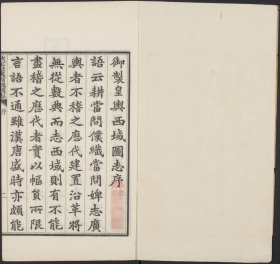 御製皇輿西域圖志序
語云耕當問僕織當問婢志廣
輿者不稽之歷代建置沿革將
無從數典而志西域則有不能
盡稽之歷代者實以幅員所限
言語不通雖漢唐盛時亦頗能
序